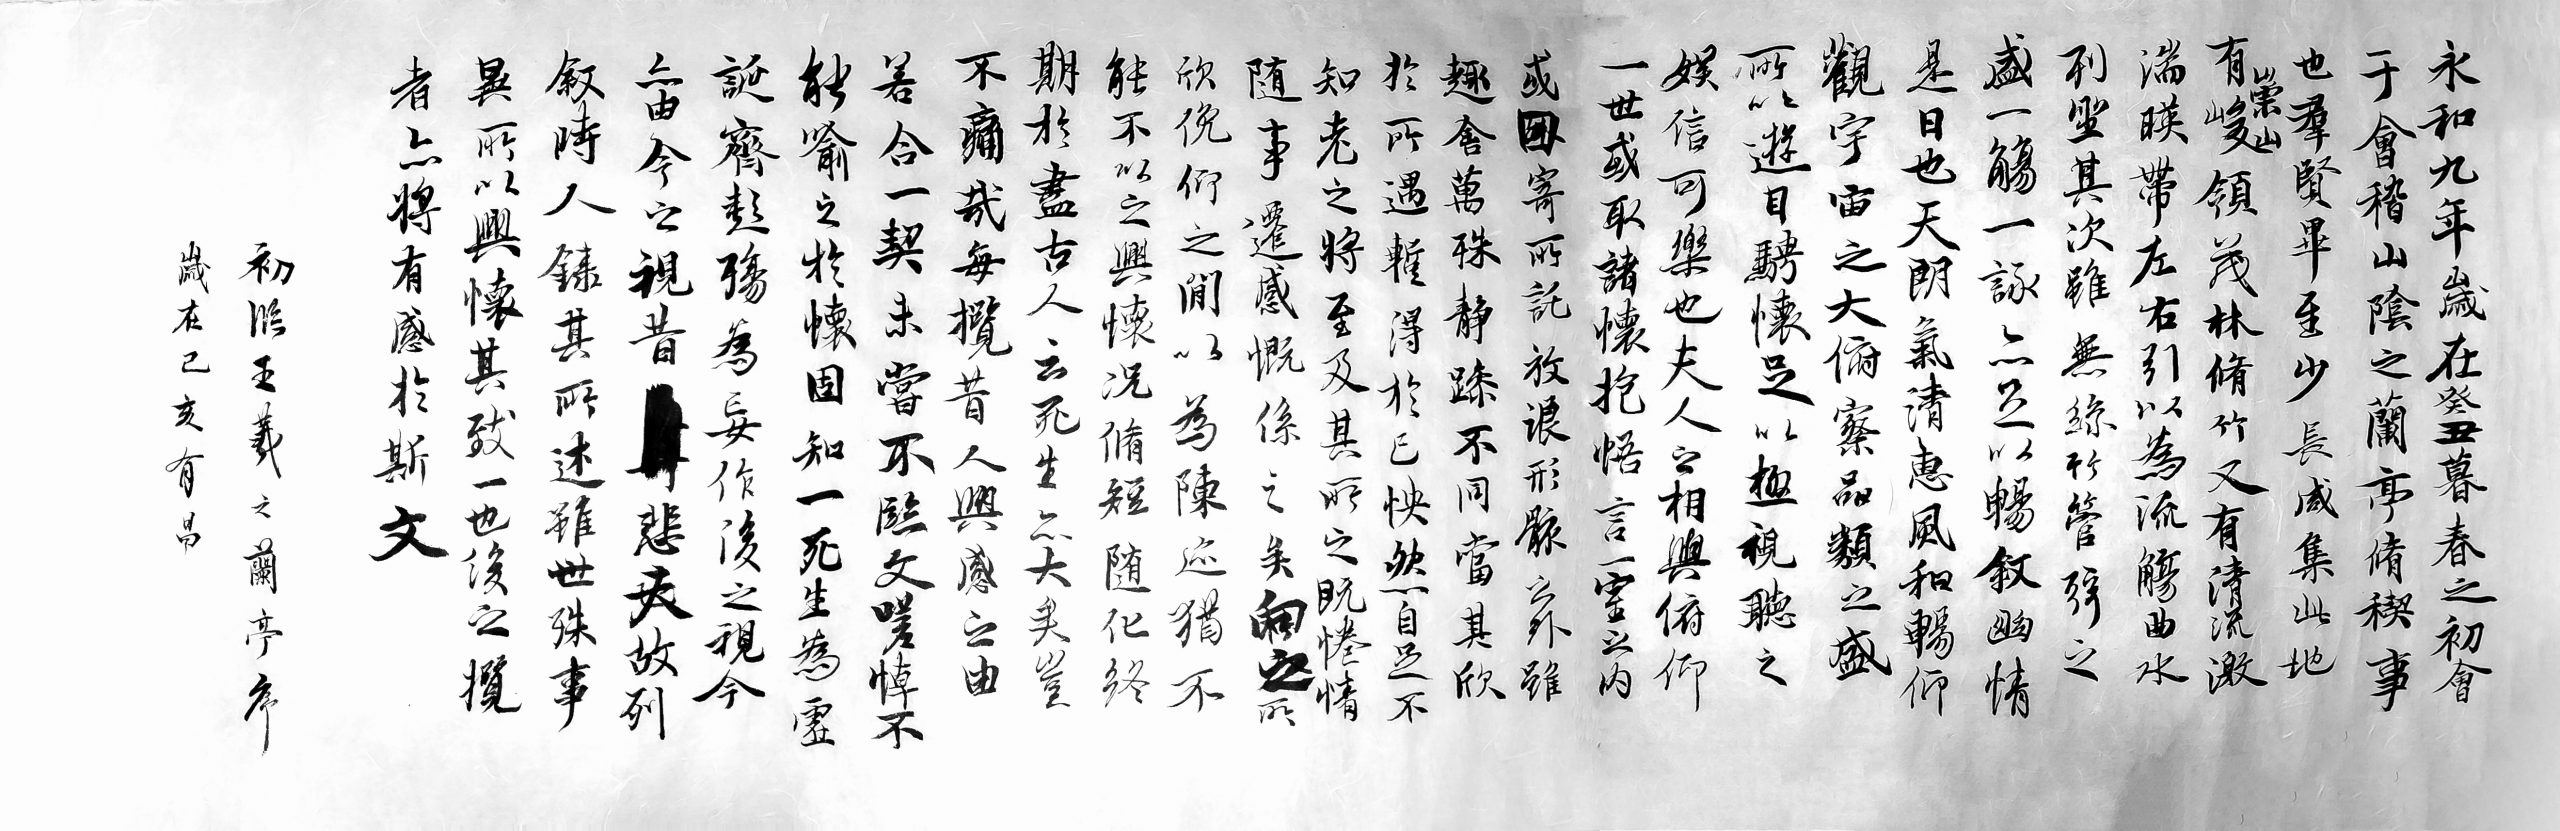 永和九年歲在癸丑暮春之初會
于會稽山陰之蘭亭脩稧事
也羣賢畢至少長咸集此地
有崇山峻領茂林脩竹又有清流激
湍暎帶左右引以為流觴曲水
列坐其次雖無絲竹管弦之
盛一觴一詠亦足以暢敘幽情
是日也天朗氣清惠風和暢仰
觀宇宙之大俯察品類之盛
所以遊目騁懷足以極視聽之
娛信可樂也夫人之相與俯仰
一世或取諸懷抱悟言一室之內
或因寄所託放浪形骸之外雖
趣舍萬殊靜躁不同當其欣
於所遇暫得於己怏然自足不
知老之將至及其所之既惓情
隨事遷感慨係之矣向之所
欣俛仰之閒以為陳迹猶不
能不以之興懷況脩短隨化終
期於盡古人云死生亦大矣豈
不痛哉每攬昔人興感之由
若合一契未嘗不臨文嗟悼不
能喻之於懷固知一死生為虛
誕齊彭殤為妄作後之視今
亦由今之視昔悲夫故列
敘時人錄其所述雖世殊事
異所以興懷其致一也後之攬
者亦將有感於斯文
初臨王羲之蘭亭序
歲在己亥有昌